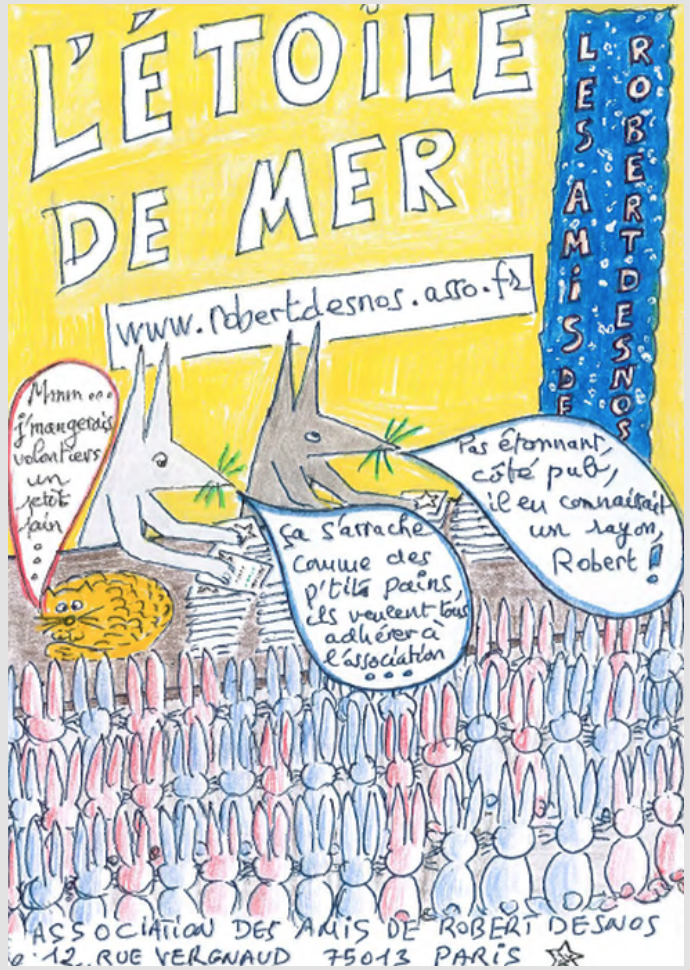 L'ÉTOILE
DE MER
LES AMIS DE
ROBERT DESNOS
www.robertdesnos.asso.fr
Mmm...
j'mangerais
volontiers
un
petit
pain
...
Pas étonnant,
côté pub,
il en connaissait
un rayon,
Robert !
Ça s'arrache
comme des
p'tits pains,
ils veulent tous
adhérer à
l'association
...
ASSOCIATION DES AMIS DE ROBERT DESNOS
12, RUE VERGNAUD 75013 PARIS